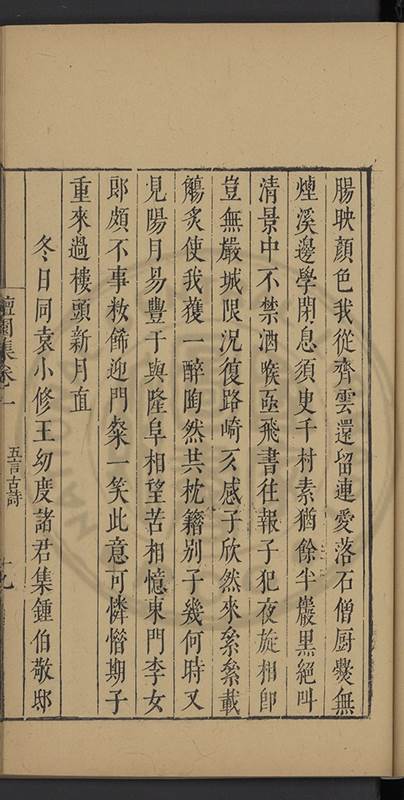 腸映顏色我從齊雲還留連愛落石僧厨爨無
煙溪邊學閉息須臾千村素猶餘半巖黑絕叫
清景中不禁酒喉亟飛書往報子犯夜旋相卽
豈無嚴城限況復路崎仄感子欣然來纍纍載
觴炙使我獲一醉陶然共枕籍別子幾何時又
見陽月易豐于與隆阜相望苦相憶東門李女
郎頗不事妝飾迎門粲一笑此意可憐惜期子
重來過樓頭新月直
冬日同袁小修王幼度諸君集鍾伯敬邸
集卷一
五言古詩